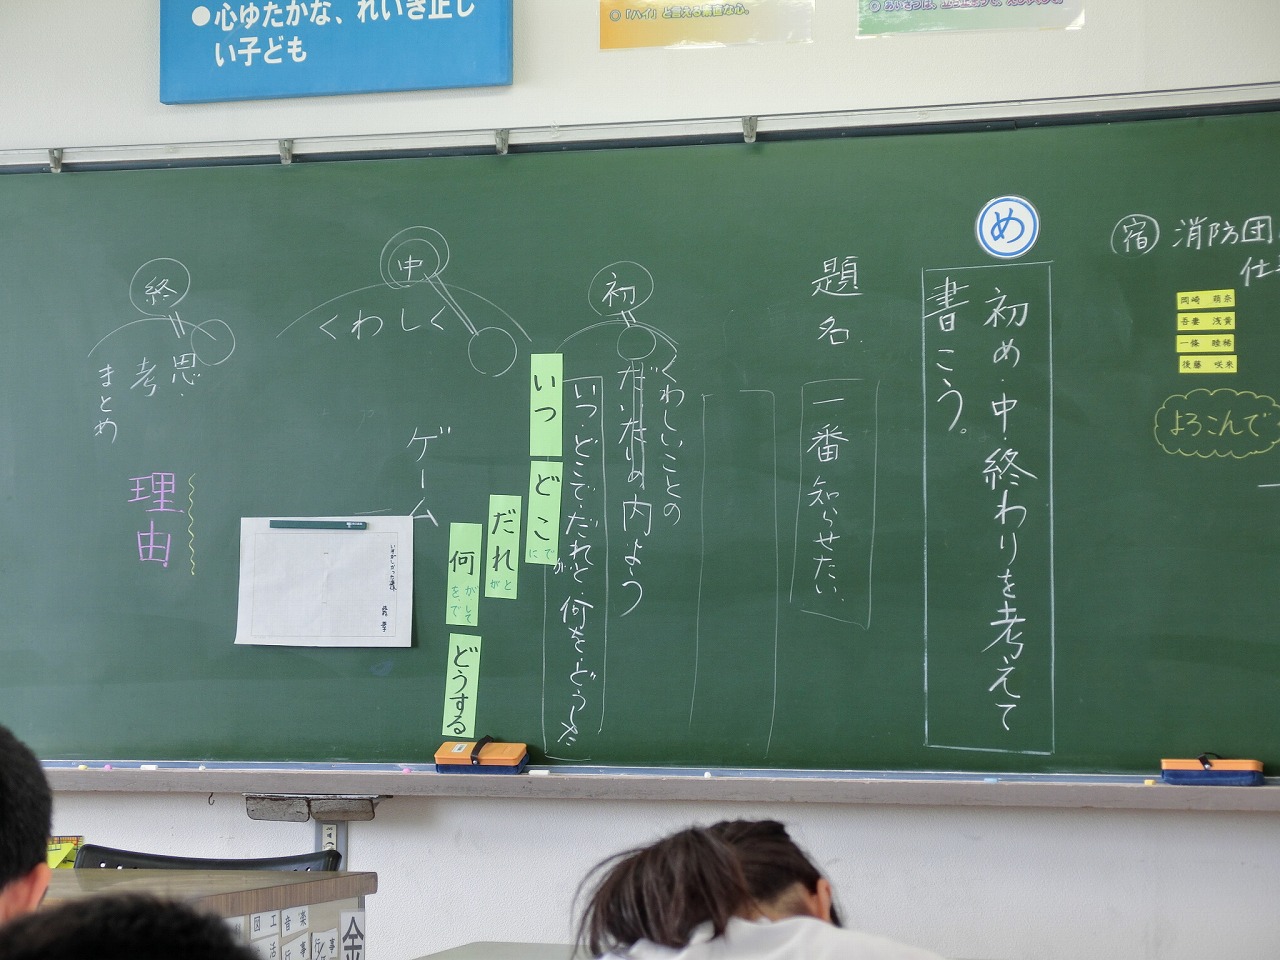 ●心ゆたかな、れいき正し
い子ども
◎「ハイ」と言える素直な心。
宿
消防団
仕
岡崎 萌奈
吾妻 浅黄
一條 睦稀
後藤 咲来
よろこんで
め
初め・中・終わりを考えて
書こう。
題名
一番知らせたい
初
くわしいことの
だいたいの内よう
いつ・どこで・だれと・何を・どうした
いつ
どこ
にで
だれ
がと
何
がして
を、で
どうする
中
くわしく
ゲーム
終
思・
考
まとめ
理由
図工
音楽
活
行事
行事
金